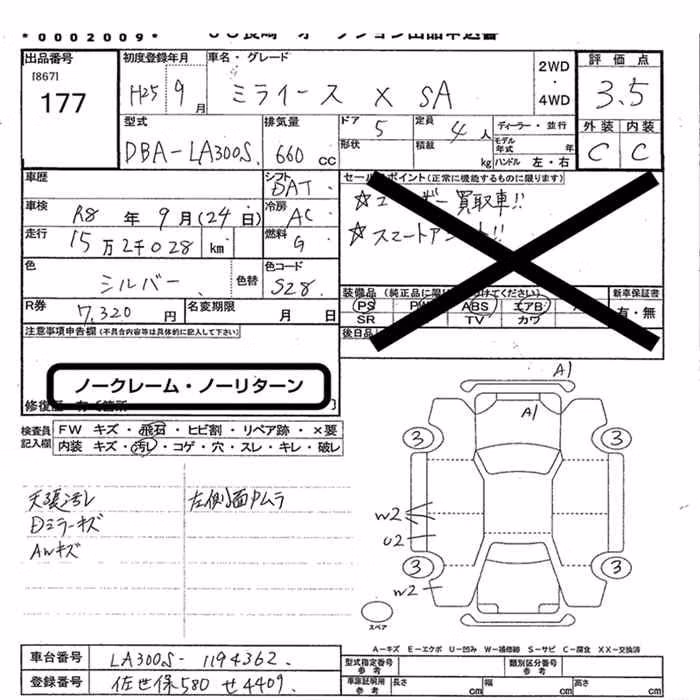 *0002009*
出品番号 初度登録年月 車名・グレード 2WD・4WD 評価点
[867]
177 H25 9月 ミライース X SA 3.5
外装 内装
C C
型式 排気量 ドア 定員 ディーラー・並行
DBA-LA300S. 660cc 5 4人
形状 積載 kg モデル年式 年
ハンドル 左・右
車歴 シフト セールスポイント(正常に機能するものに限ります)
DAT
買取車!!
車検 R8年9月(24日) 冷房 AC
☆スマートア
走行 15万2千028 km 燃料 G
色 シルバー 色替 色コード S28
装備品
PS ABS エアB
SR TV カワ
新車保証書 有・無
R券 7,320円 名変期限 月 日
後日品
注意事項申告欄(不具合内容等は具体的に記入して下さい)
ノークレーム・ノーリターン
検査員記入欄 FW キズ・飛石・ヒビ割・リペア跡・×要
内装 キズ・汚レ・コゲ・穴・スレ・キレ・破レ
A1
A1
3 3
天張汚レ 左側面内ムラ
Dミラーキズ
AWキズ
W2
U2
3 3
W2
スペア
A-キズ E-エクボ U-凹み W-補修跡 S-サビ C-腐食 XX-交換済
車台番号 LA300S-1194362.
型式指定番号 参考 類別区分番号 参考
登録番号 佐世保580 せ4409.
車庫証明用 参考 長さ cm 幅 cm 高さ cm